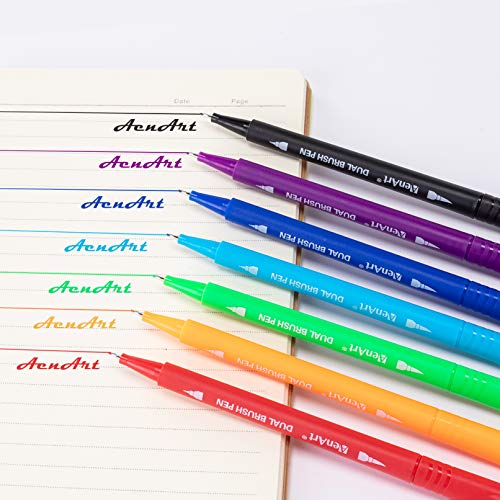 Date Page
AenArt
DUAL BRUSH PEN AenArt®
AenArt
DUAL BRUSH PEN AenArt®
AenArt
DUAL BRUSH PEN AenArt®
AenArt
DUAL BRUSH PEN AenArt®
AenArt
DUAL BRUSH PEN AenArt®
AenArt
DUAL BRUSH PEN AenArt®
AenArt
DUAL BRUSH PEN AenArt®